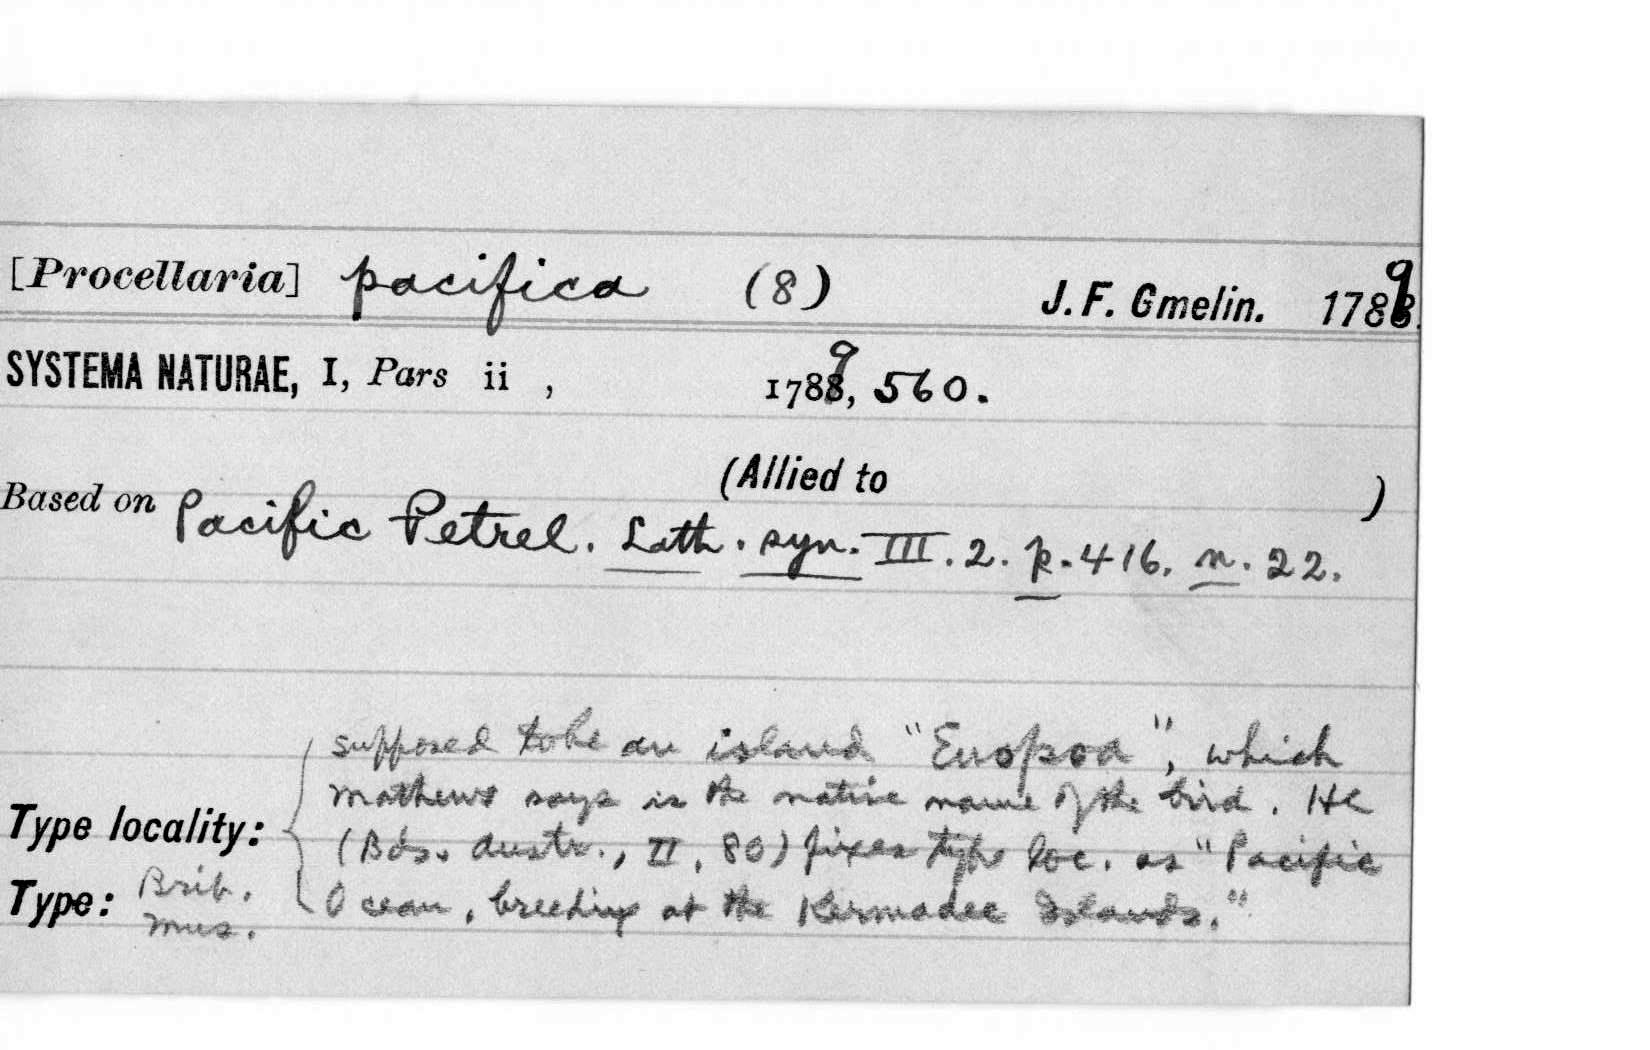 [Procellaria] pacifica (8) J. F. Gmelin. 1789.
SYSTEMA NATURAE, I, Pars ii , 1789, 560.
(Allied to )
Based on Pacific Petrel. Lath. syn. III. 2. p. 416. n. 22.
supposed to be an island "Enopoa", which
Mathews says is the native name of the bird. He
Type locality: (Bds. Austr., II, 80) fixes type loc. as "Pacific
Type: Brit. Mus. Ocean, breeding at the Kermadec Islands."